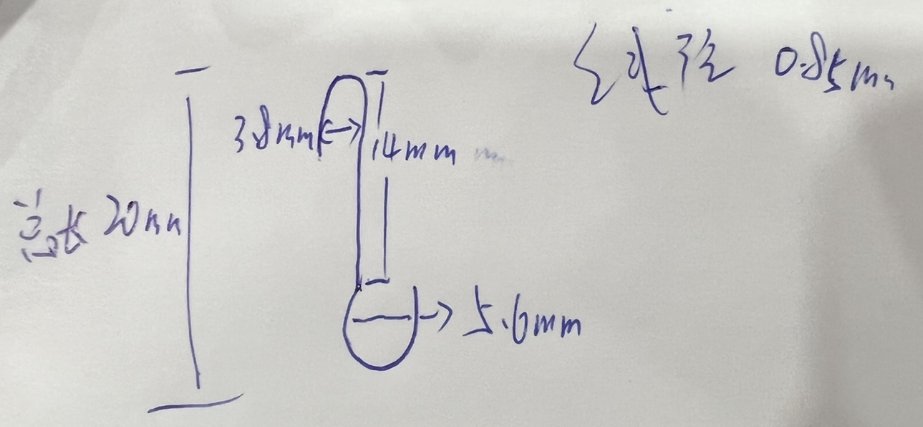 线径 0.85mm
3.8mm
14mm
总长 20mm
5.6mm